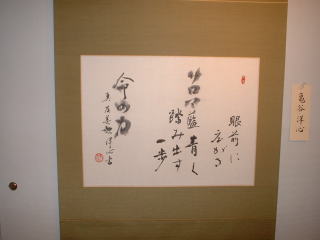 眼前に
広がる
サロマ藍青く
踏み出す
一歩
命の力
亀谷洋心